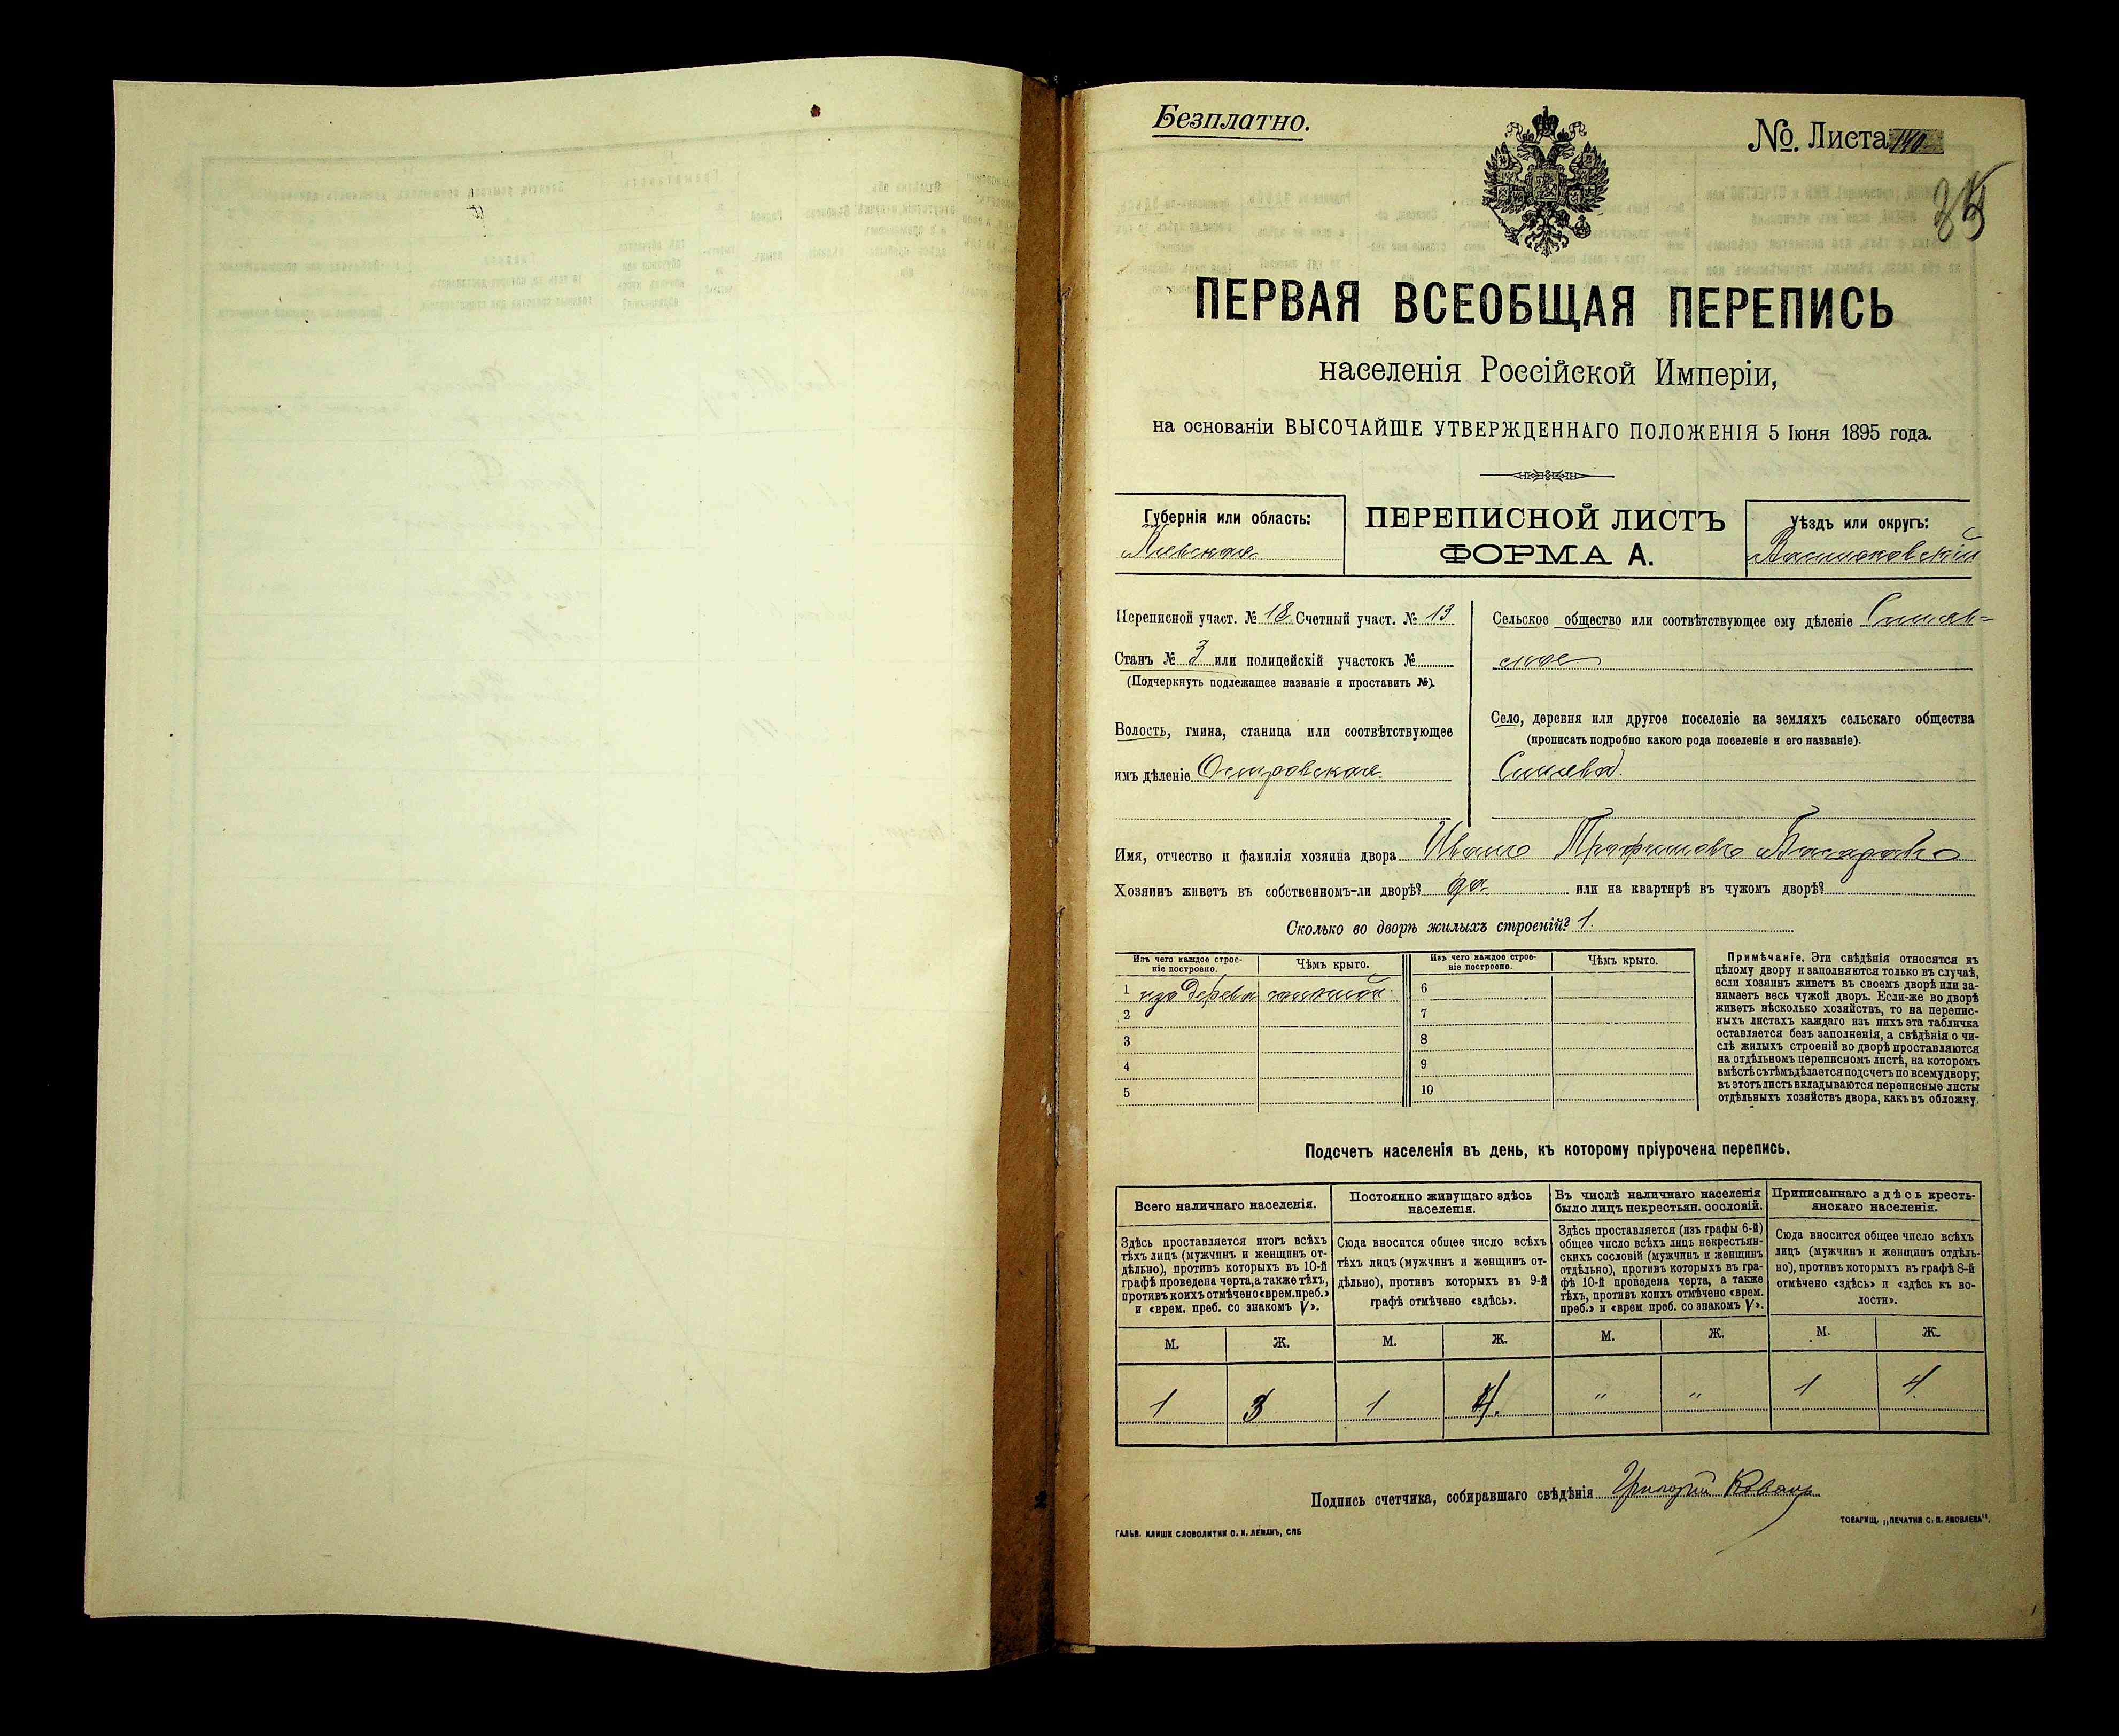 Безплатно.
№. Листа 140
ПЕРВАЯ ВСЕОБЩАЯ ПЕРЕПИСЬ
населенія Россійской Имперіи,
на основаніи ВЫСОЧАЙШЕ УТВЕРЖДЕННАГО ПОЛОЖЕНІЯ 5 Іюня 1895 года.
Губернія или область:
Кіевская
ПЕРЕПИСНОЙ ЛИСТЪ
ФОРМА А.
Уѣздъ или округъ:
Васильковскій
Переписной участ. № 18 Счетный участ. № 13
Станъ № 3 или полицейскій участокъ №
(Подчеркнуть подлежащее названіе и проставить №).
Волость, гмина, станица или соотвѣтствующее
имъ дѣленіе Островская
Сельское общество или соотвѣтствующее ему дѣленіе Синяв-
ское
Село, деревня или другое поселеніе на земляхъ сельскаго общества
(прописать подробно какого рода поселеніе и его названіе).
Синява.
Имя, отчество и фамилія хозяина двора Иванъ Трофимовъ
Хозяинъ живетъ въ собственномъ-ли дворѣ? да или на квартирѣ въ чужомъ дворѣ?
Сколько во дворѣ жилыхъ строеній? 1.
Изъ чего каждое строе-
ніе построено.
Чѣмъ крыто.
Изъ чего каждое строе-
ніе построено.
Чѣмъ крыто.
1 изъ дерева соломой 6
2 7
3 8
4 9
5 10
Примѣчаніе. Эти свѣдѣнія относятся къ
цѣлому двору и заполняются только въ случаѣ,
если хозяинъ живетъ въ своемъ дворѣ или за-
нимаетъ весь чужой дворъ. Если-же во дворѣ
живетъ нѣсколько хозяйствъ, то на перепис-
ныхъ листахъ каждаго изъ нихъ эта табличка
оставляется безъ заполненія, а свѣдѣнія о чи-
слѣ жилыхъ строеній во дворѣ проставляются
на отдѣльномъ переписномъ листѣ, на которомъ
вмѣстѣ съ тѣмъ дѣлается подсчетъ по всему двору;
въ этотъ листъ вкладываются переписные листы
отдѣльныхъ хозяйствъ двора, какъ въ обложку.
Подсчетъ населенія въ день, къ которому пріурочена перепись.
Всего наличнаго населенія.
Здѣсь проставляется итогъ всѣхъ
тѣхъ лицъ (мужчинъ и женщинъ от-
дѣльно), противъ которыхъ въ 10-й
графѣ проведена черта, а также тѣхъ,
противъ коихъ отмѣчено «врем. преб.»
и «врем. преб. со знакомъ V».
Постоянно живущаго здѣсь
населенія.
Сюда вносится общее число всѣхъ
тѣхъ лицъ (мужчинъ и женщинъ от-
дѣльно), противъ которыхъ въ 9-й
графѣ отмѣчено «здѣсь».
Въ числѣ наличнаго населенія
было лицъ некрестьян. сословій.
Здѣсь проставляется (изъ графы 6-й)
общее число всѣхъ лицъ некрестьян-
скихъ сословій (мужчинъ и женщинъ
отдѣльно), противъ которыхъ въ гра-
фѣ 10-й проведена черта, а также
тѣхъ, противъ коихъ отмѣчено «врем.
преб.» и «врем преб. со знакомъ V».
Приписаннаго здѣсь кресть-
янскаго населенія.
Сюда вносится общее число всѣхъ
лицъ (мужчинъ и женщинъ отдѣль-
но), противъ которыхъ въ графѣ 8-й
отмѣчено «здѣсь» и «здѣсь къ во-
лости».
М. Ж. М. Ж. М. Ж. М. Ж.
1 3 1 4. " " 1 4.
Подпись счетчика, собиравшаго свѣдѣнія Григорій Коваль
ГАЛЬВ. КЛИШЕ СЛОВОЛИТНИ О. И. ЛЕМАНЪ, СПБ
ТОВАРИЩ. „ПЕЧАТНЯ С. П. ЯКОВЛЕВА".